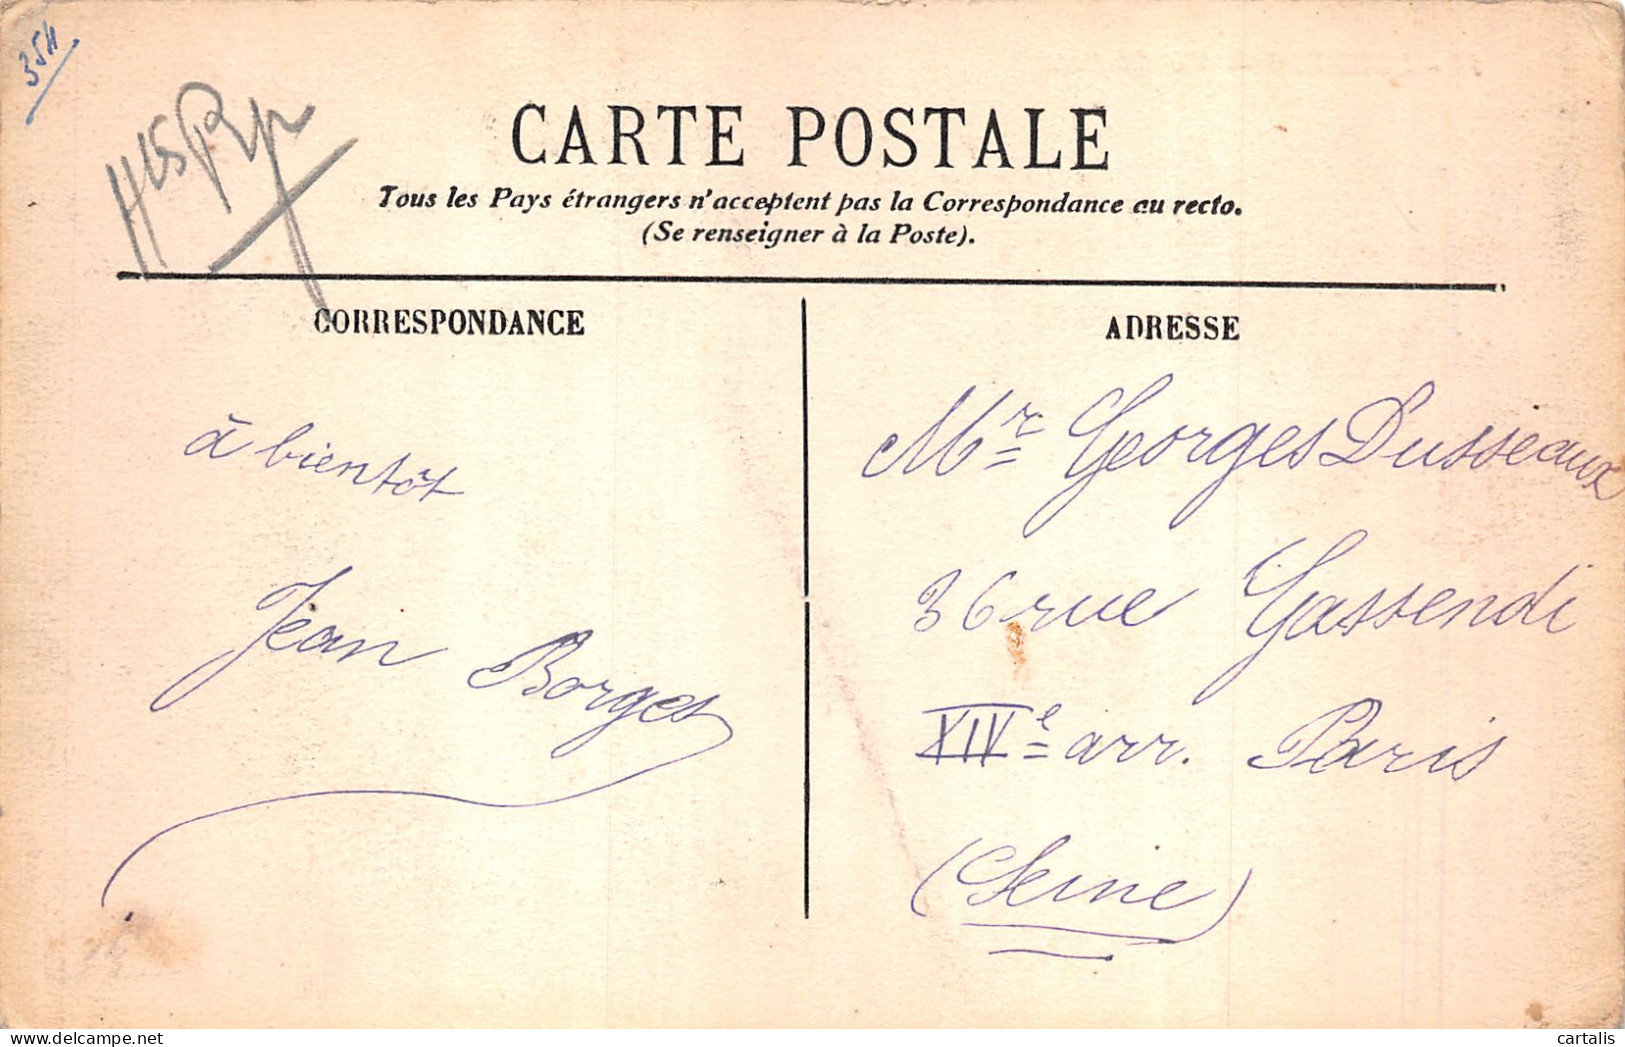 CARTE POSTALE
Tous les Pays étrangers n'acceptent pas la Correspondance au recto.
(Se renseigner à la Poste).
CORRESPONDANCE
à bientôt
Jean Borges
ADRESSE
Mr Georges Dusseaux
36 rue Gassendi
XIVe arr. Paris
(Seine)
cartalis